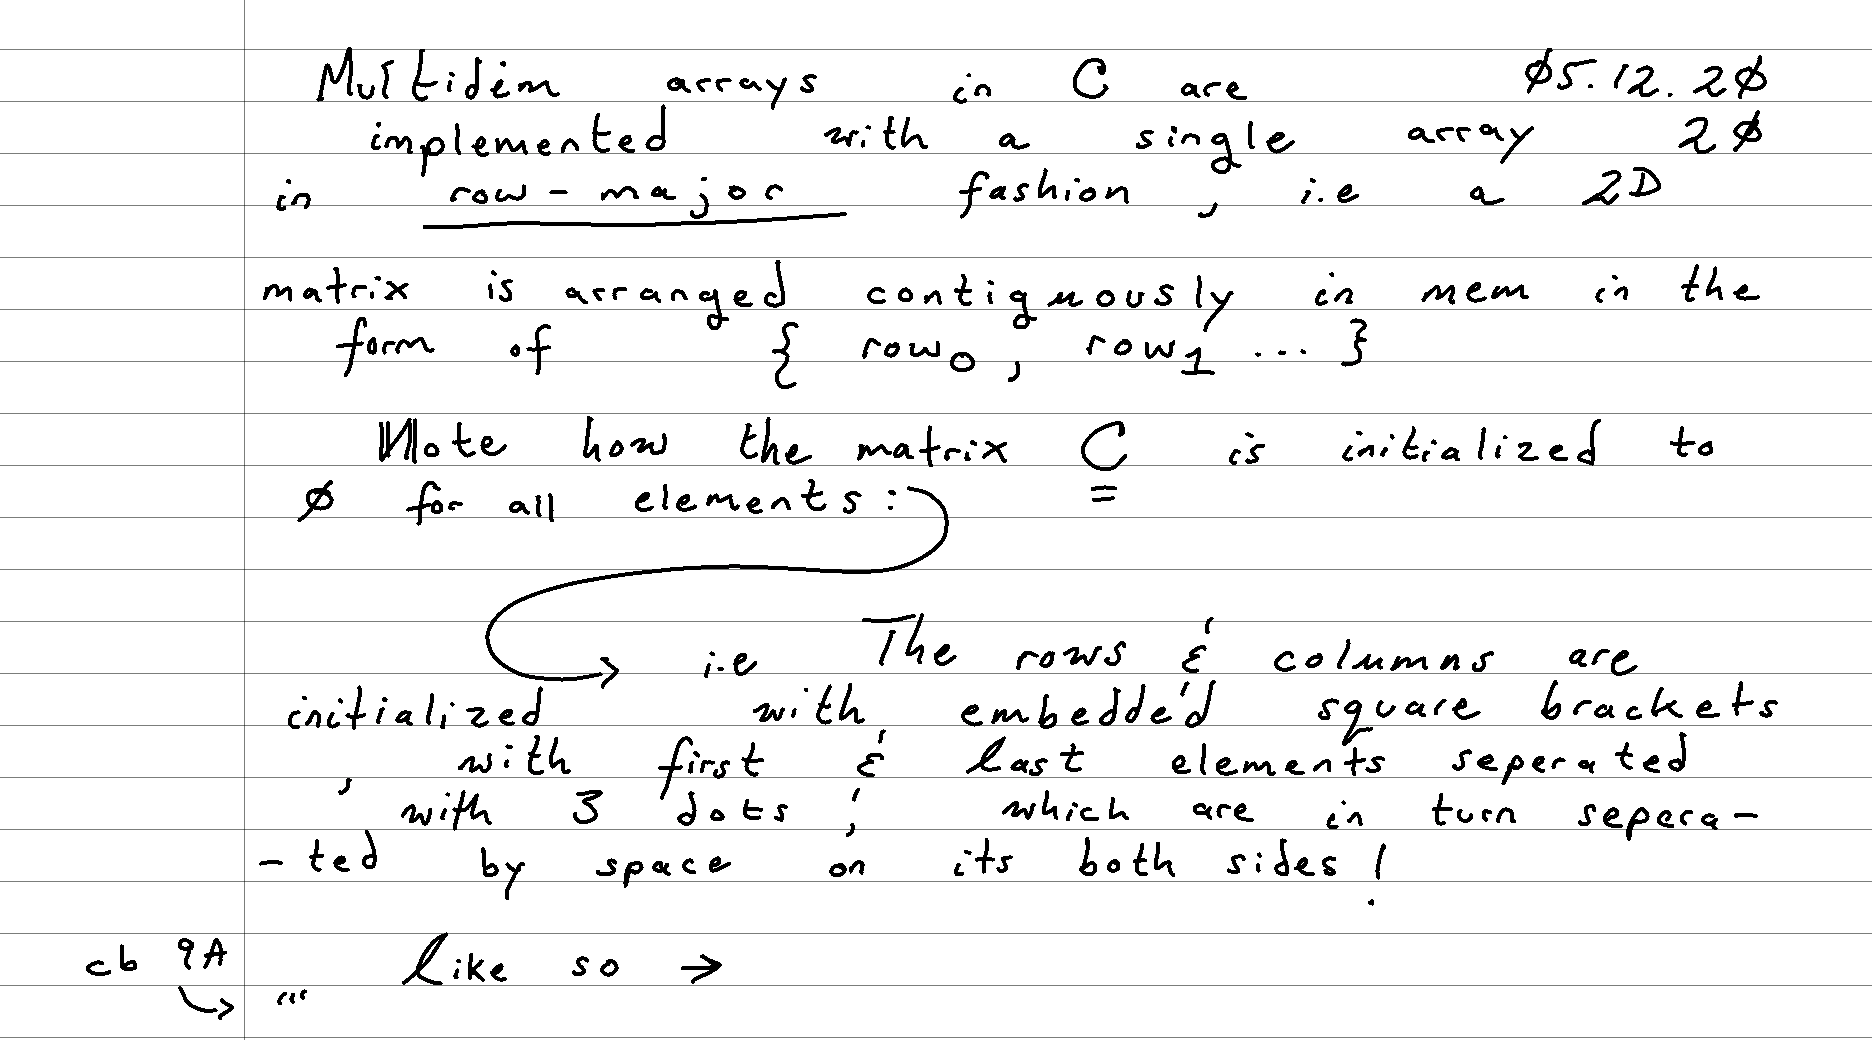 Multidim arrays in C are Ø5.12.2Ø
implemented with a single array 2Ø
in row-major fashion, i.e a 2D
matrix is arranged contiguously in mem in the
form of { row0, row1 ... }
Note how the matrix C is initialized to
Ø for all elements:
→ i.e The rows & columns are
initialized with embedded square brackets
, with first & last elements seperated
with 3 dots, which are in turn sepera-
-ted by space on its both sides!
cb 9A like so →
↳ """